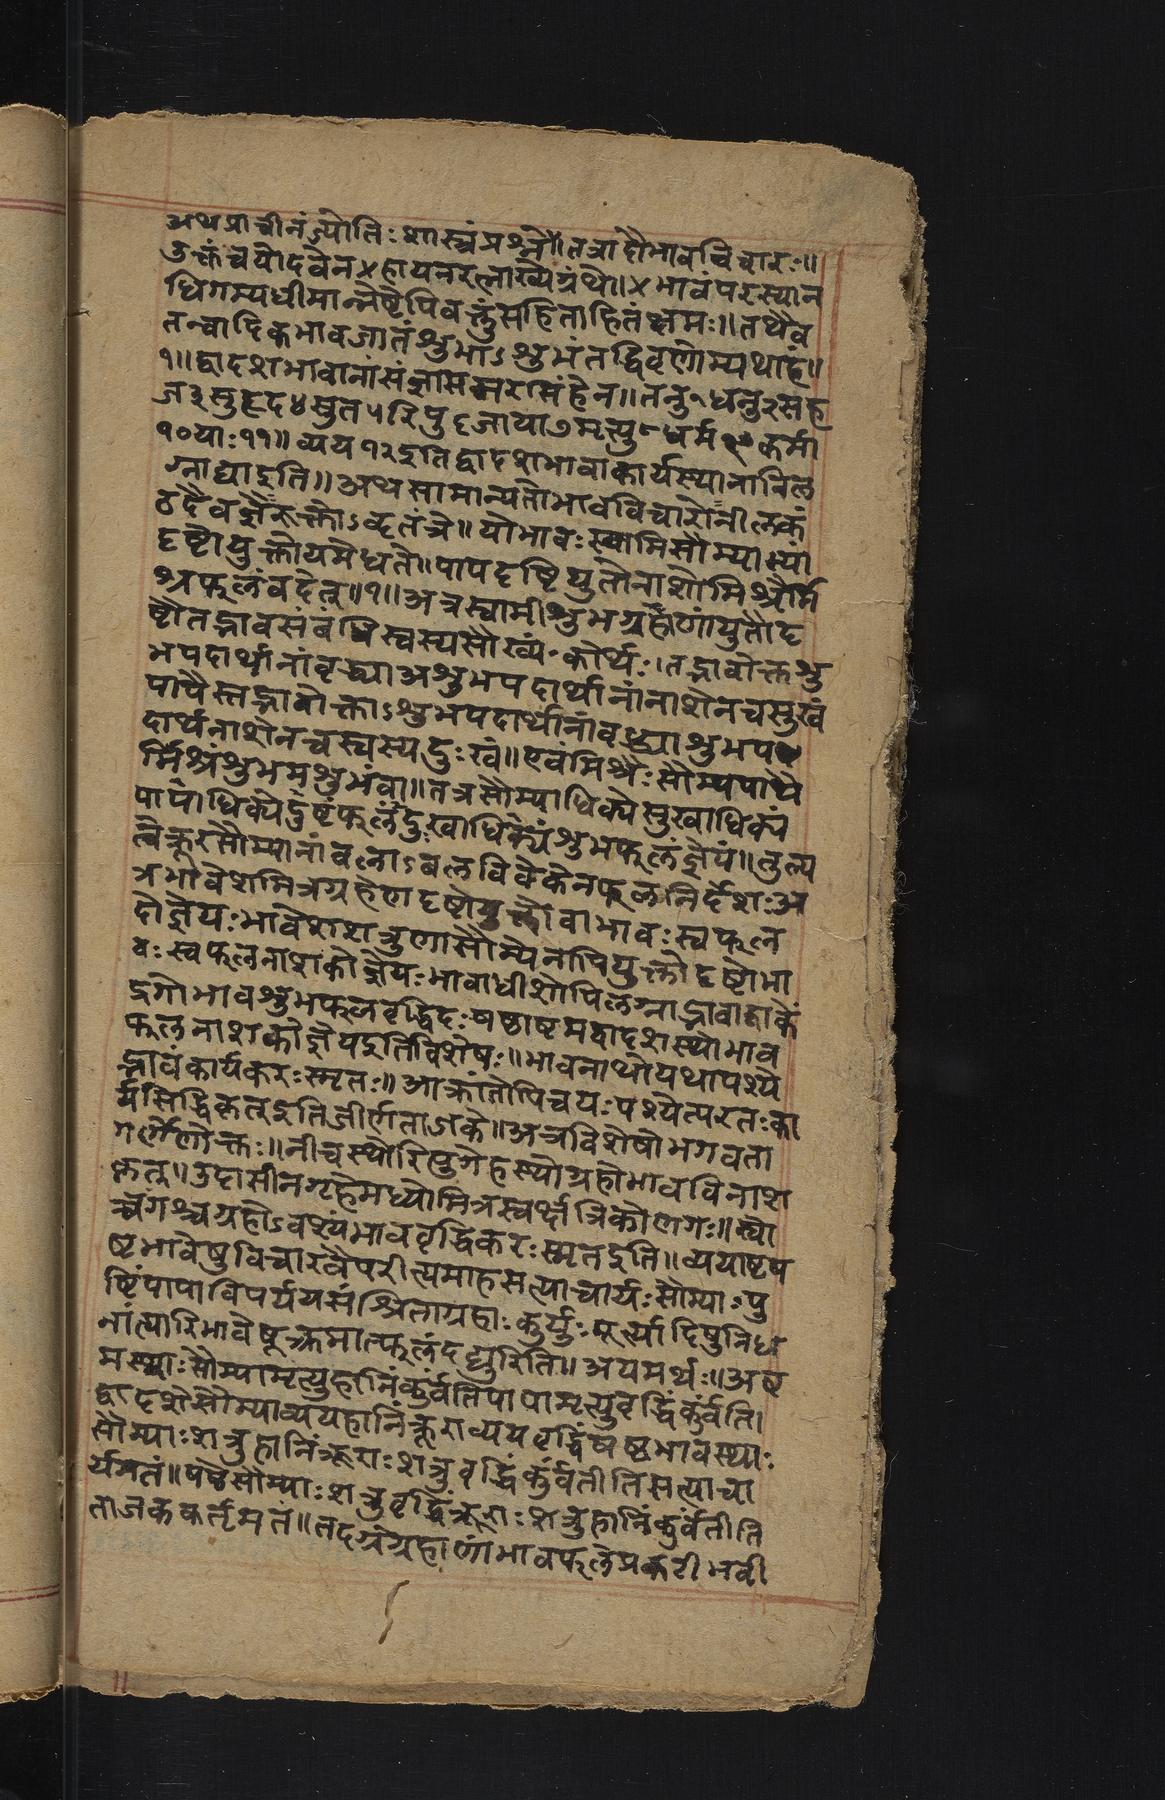 अथप्राचीनंज्योतिःशास्त्रंप्रश्नौ॥तत्रादौभावविचारः॥
उक्तंचयादवेन×हायनरत्नाख्येग्रंथे॥×भावंपरस्यान
धिगम्यधीमान्नैष्टेपिवक्तुंसहिताहितंक्षमः॥तथैव
तन्वादिकभावजातंशुभाऽशुभंतद्विवृणोम्यथाहं॥
१॥द्वादशभावानांसंज्ञासमरासिंहेन॥तनु१धनु२सह
ज३सुहृद४सुत५रिपु६जाया७मृत्यु८धर्म९कर्मा
१०याः११॥व्यय१२इतिद्वादशभावाकार्यस्थानानिल
ग्नाद्याइति॥अथसामान्यतोभावविचारोनीलकं
ठदैवज्ञैरुक्तोऽकृतंत्रे॥योभावःस्वामिसौम्याभ्यां
दृष्टोयुक्तोयमेधते॥पापदृष्टियुतोनाशोमिश्रैर्मि
श्रफलंवदेत्॥१॥अत्रस्वामीशुभग्रहाणांयुतौद
ष्टौतद्भावसंबंधिस्वस्यसौख्यं॰कोर्थः।तद्भावोक्तशु
भपदार्थानांवृद्ध्याअशुभपदार्थानांनाशेनचसुखं
पापैस्तद्भावोक्ताऽशुभपदार्थानांवध्द्याशुभप
दार्थनाशेनचस्वस्यदुःखं॥एवंमिश्रैःसौम्यपापै
र्मिश्रंशुभमशुभंवा॥तत्रसौम्याधिक्येसुखाधिक्यं
पापाधिक्येदुष्टंफलंदुःखाधिक्यंशुभफलंज्ञेयं॥तुल्य
त्वेक्रूरसौम्यानांबलाऽबलविवेकेनफलनिर्देशःअ
त्रभावेशमित्रग्रहेणदृष्टोयुक्तोवाभावःस्वफल
दोज्ञेयःभावेशशत्रुणासौम्येनापियुक्तोदृष्टोभा
वःस्वफलनाशकोज्ञेयःभावाधीशोपिलग्नाद्भावाद्वाकें
द्रगोभावशुभफलवृद्धिदःषष्ठाष्टमद्वादशस्थोभाव
फलनाशकोज्ञेयइतिविशेषः॥भावनाथोयथापश्ये
द्भावंकार्यकरःस्मृतः॥आक्रांतोपिचयःपश्येत्परतःका
र्यसिद्धिकृत्इतिजीर्णताजके॥अत्रविशेषोभगवता
गर्गेणोक्तः॥नीचस्थोरिपुगेहस्थोग्रहोभावविनाश
कृत्॥उदासीनगृहेमध्योमित्रस्वर्क्षत्रिकोणगः॥स्वो
च्चगश्चग्रहोऽवश्यंभाववृद्धिकरःस्मृतइति॥व्ययाष्टष
ष्टभावेषुविचारवैपरीत्यमाहसत्याचार्यःसौम्याःपु
ष्टिंपापाविपर्ययसंश्रिताग्रहाःकुर्युःमूर्त्यादिषुनिध
नांत्यारिभावेषूत्क्रमात्फलंदद्युरिति॥अयमर्थः॥अष्ट
मस्थाःसौम्यामृत्युहानिंकुंर्वतिपापामृत्युवृद्धिंकुंर्वति।
द्वादशेसौम्याव्ययहानिंक्रूराव्ययवृद्धिंषष्ठभावस्थाः
सौम्याःशत्रुहानिंक्रूराःशत्रुवृद्धिंकुंर्वतीतिसत्याचा
र्यमतं॥षष्ठेसौम्याःशत्रुवृद्धिंक्रूराःशत्रुहानिंकुंर्वतीति
ताजककर्तृमतं॥तदग्रेग्रहाणांभावफलेप्रकटीभवी